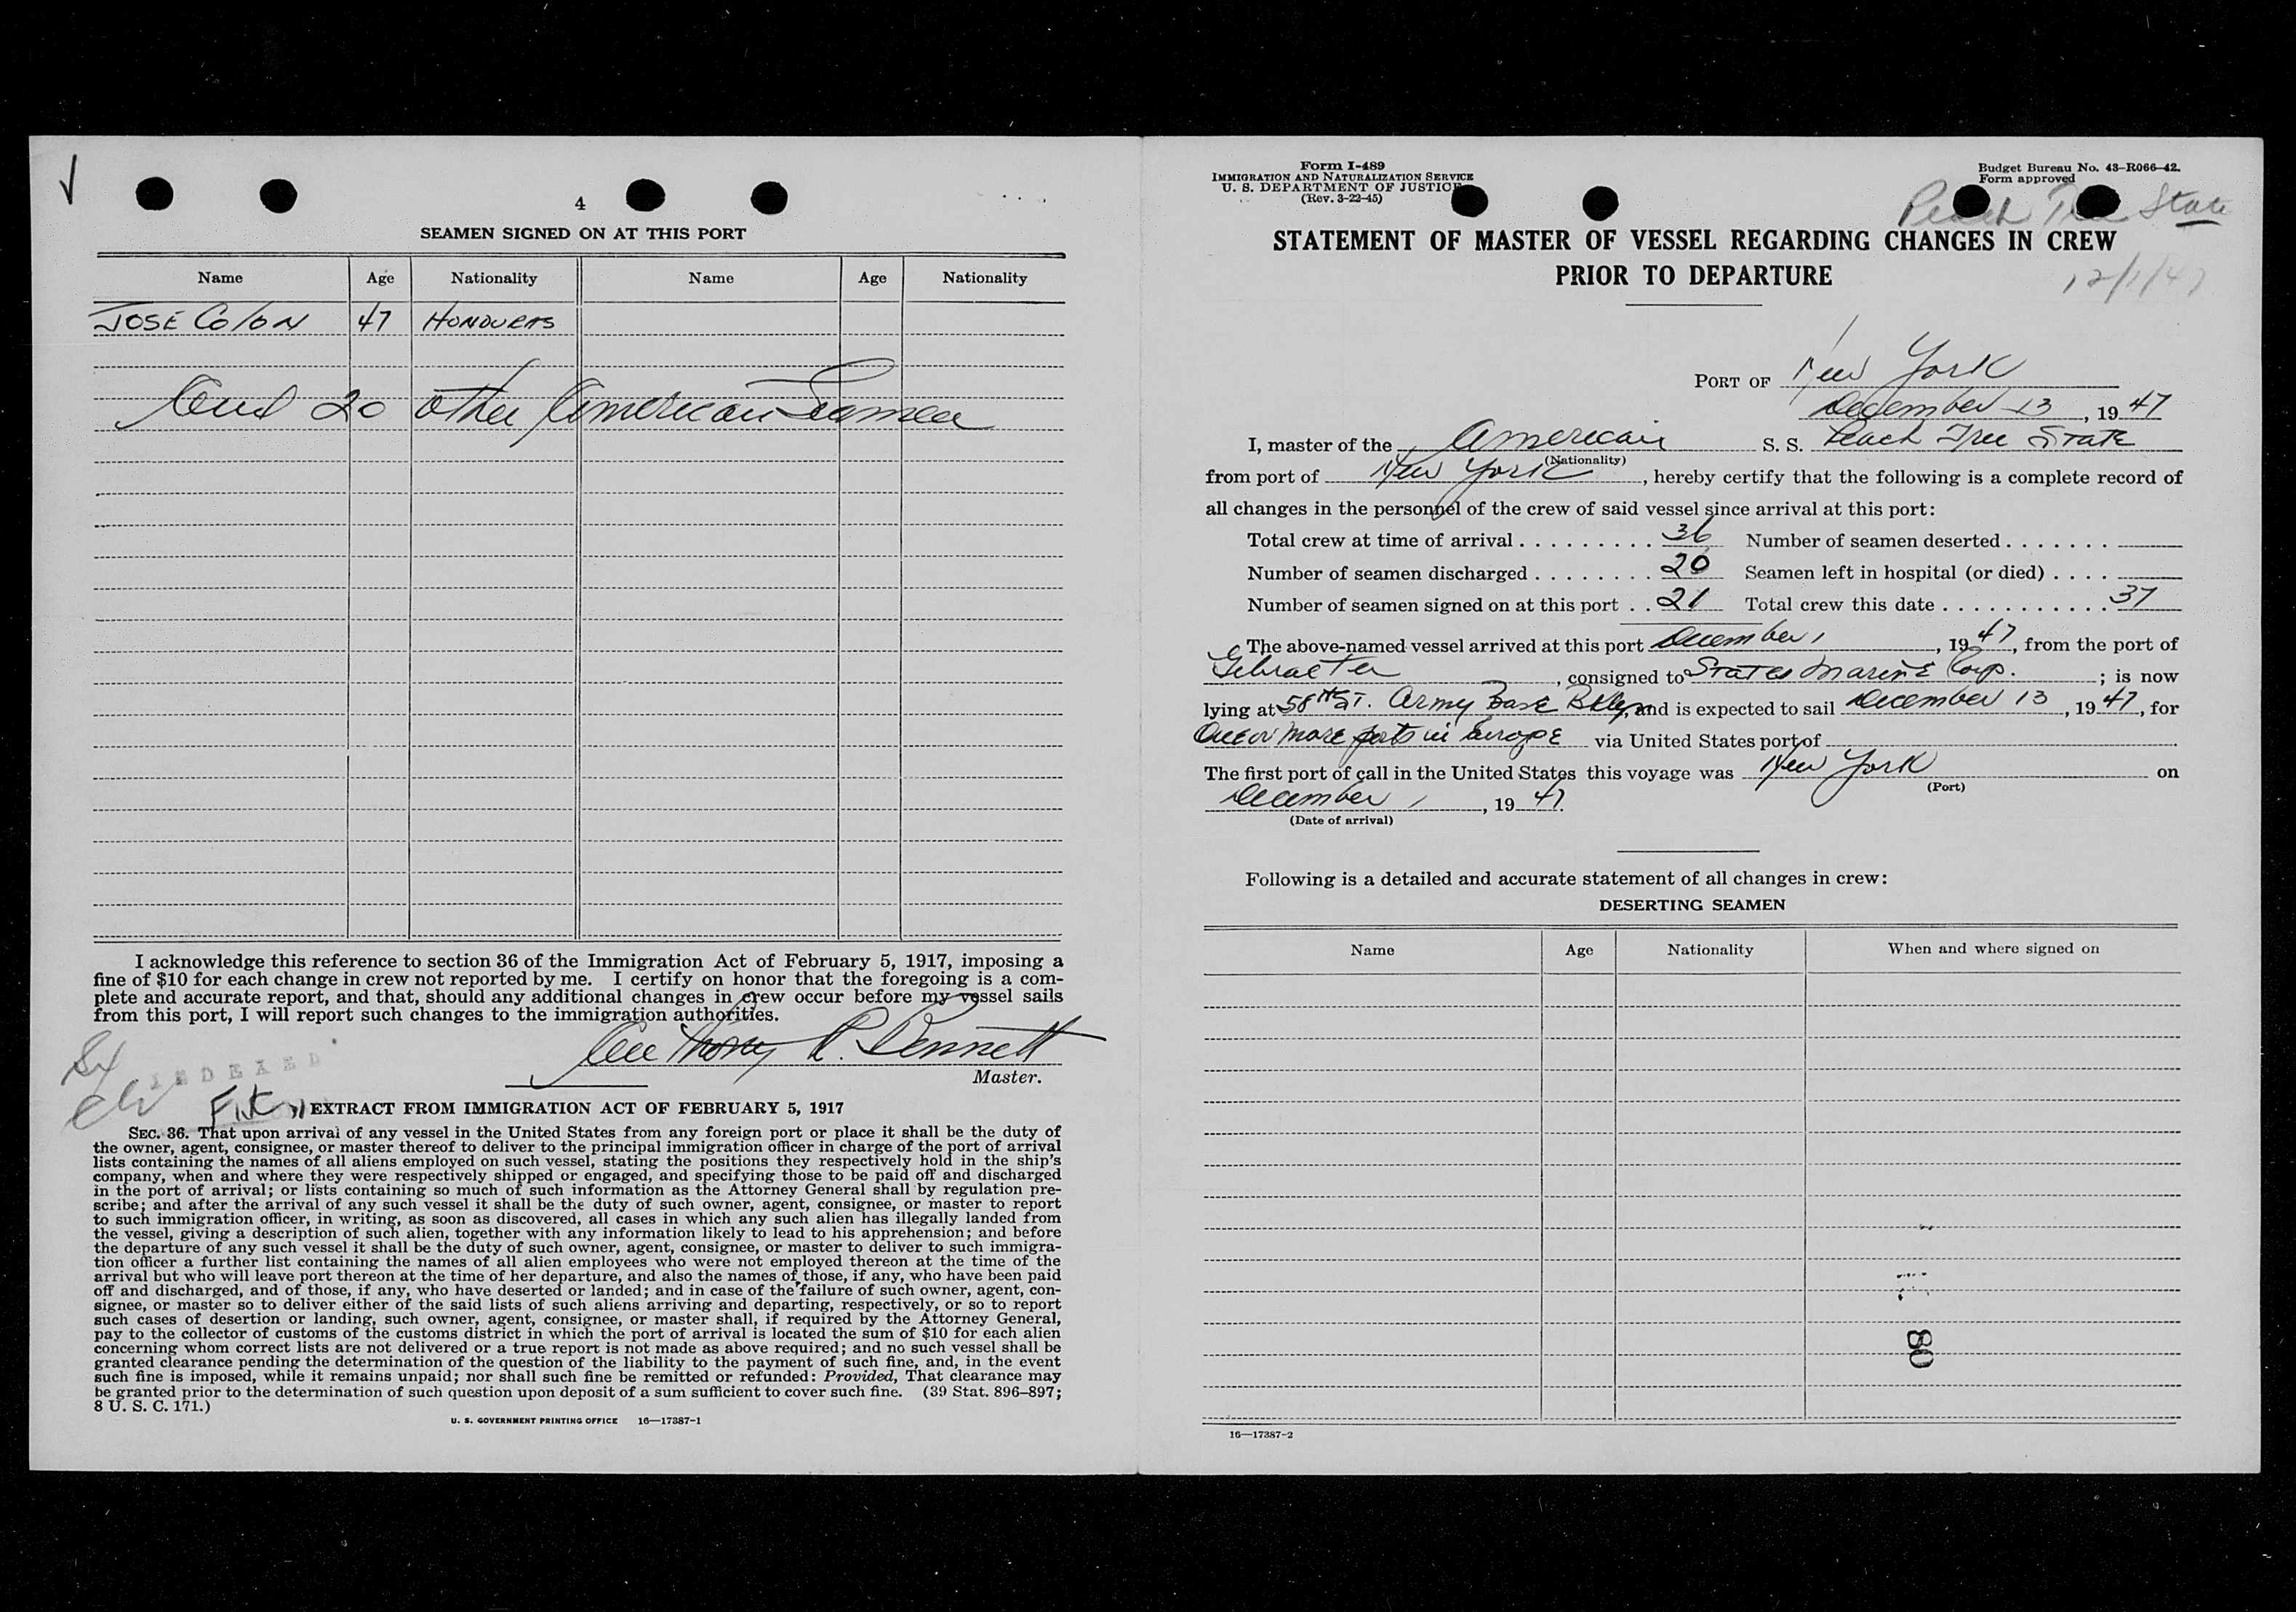 4
SEAMEN SIGNED ON AT THIS PORT
Name Age Nationality Name Age Nationality
JOSE COLON 47 HONDURAS
and 20 other American Seamen
I acknowledge this reference to section 36 of the Immigration Act of February 5, 1917, imposing a
fine of $10 for each change in crew not reported by me. I certify on honor that the foregoing is a com-
plete and accurate report, and that, should any additional changes in crew occur before my vessel sails
from this port, I will report such changes to the immigration authorities.
Anthony R. Bennett
Master.
INDEXED
EXTRACT FROM IMMIGRATION ACT OF FEBRUARY 5, 1917
SEC. 36. That upon arrival of any vessel in the United States from any foreign port or place it shall be the duty of
the owner, agent, consignee, or master thereof to deliver to the principal immigration officer in charge of the port of arrival
lists containing the names of all aliens employed on such vessel, stating the positions they respectively hold in the ship's
company, when and where they were respectively shipped or engaged, and specifying those to be paid off and discharged
in the port of arrival; or lists containing so much of such information as the Attorney General shall by regulation pre-
scribe; and after the arrival of any such vessel it shall be the duty of such owner, agent, consignee, or master to report
to such immigration officer, in writing, as soon as discovered, all cases in which any such alien has illegally landed from
the vessel, giving a description of such alien, together with any information likely to lead to his apprehension; and before
the departure of any such vessel it shall be the duty of such owner, agent, consignee, or master to deliver to such immigra-
tion officer a further list containing the names of all alien employees who were not employed thereon at the time of the
arrival but who will leave port thereon at the time of her departure, and also the names of those, if any, who have been paid
off and discharged, and of those, if any, who have deserted or landed; and in case of the failure of such owner, agent, con-
signee, or master so to deliver either of the said lists of such aliens arriving and departing, respectively, or so to report
such cases of desertion or landing, such owner, agent, consignee, or master shall, if required by the Attorney General,
pay to the collector of customs of the customs district in which the port of arrival is located the sum of $10 for each alien
concerning whom correct lists are not delivered or a true report is not made as above required; and no such vessel shall be
granted clearance pending the determination of the question of the liability to the payment of such fine, and, in the event
such fine is imposed, while it remains unpaid; nor shall such fine be remitted or refunded: Provided, That clearance may
be granted prior to the determination of such question upon deposit of a sum sufficient to cover such fine. (39 Stat. 896–897;
8 U. S. C. 171.)
U. S. GOVERNMENT PRINTING OFFICE 16—17387-1
Form I-489
IMMIGRATION AND NATURALIZATION SERVICE
U. S. DEPARTMENT OF JUSTICE
(Rev. 3-22-45)
Budget Bureau No. 43-R066-42.
Form approved
Peach Tree State
STATEMENT OF MASTER OF VESSEL REGARDING CHANGES IN CREW
PRIOR TO DEPARTURE
12/1/47
PORT OF New York
December 13, 1947
I, master of the American S. S. Peach Tree State
(Nationality)
from port of New York, hereby certify that the following is a complete record of
all changes in the personnel of the crew of said vessel since arrival at this port:
Total crew at time of arrival . . . . . . . . . 36 Number of seamen deserted . . . . . . .
Number of seamen discharged . . . . . . . . 20 Seamen left in hospital (or died) . . . .
Number of seamen signed on at this port . . 21 Total crew this date . . . . . . . . . . . . 37
The above-named vessel arrived at this port December 1, 1947, from the port of
Gibralter, consigned to States Marine Corp. ; is now
lying at 58th St. Army Base Bklyn, and is expected to sail December 13, 1947, for
One or more ports in Europe via United States port of
The first port of call in the United States this voyage was New York on
(Port)
December 1, 1947.
(Date of arrival)
Following is a detailed and accurate statement of all changes in crew:
DESERTING SEAMEN
Name Age Nationality When and where signed on
80
16—17387-2